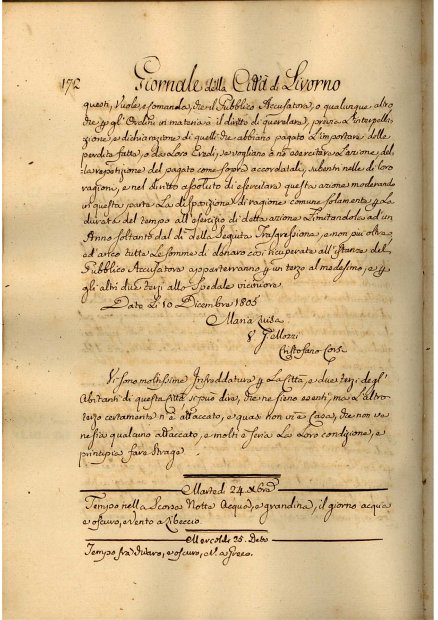 172 Giornale della Città di Livorno
questi, Vuole, e Comanda, che il Pubblico Accusatore, o qualunque altro
che p gl'Ordini in materia à il diritto di querelare, previa L'interpella-
zione, e dichiarazione di quelli che abbiano pagato L'importare delle
perdite fatte, o da Loro Eredi, se vogliano, o nò esercitare L'azione del-
la repetizione del pagato come sopra accordatali, subentri nelle di loro
ragioni, e nel diritto assoluto di esercitare questa azione moderando
in questa parte La disposizione di ragione comune solamente p La
durata del tempo all'esercizio di detta azione Limitandola ad un
Anno soltanto dal dì della seguita Trasgressione, e non più oltre
ed anco tutte Le somme di denaro così ricuperate all'istanze del
Pubblico Accusatore apparterranno p un terzo al medesimo, e p
gli altri due terzi allo Spedale viciniore.
Dato Li 10 Dicembre 1805
Maria Luisa
V. J. Mozzi
Cristofano Corsi
Vi sono moltissime Infreddature p La Città, e due terzi degl'
Abitanti di questa Città si può dire, che ne sieno esenti, ma L'altro
terzo certamente n'è attaccato, e quasi non vi è Casa, che non ve
ne sia qualcuno attaccato, e molti è seria La Loro condizione, e
principia fare strage
Martedì 24. Xbre
Tempo nella Scorsa Notte Acqua, e grandina, il giorno acqua
e oscuro, e vento a Libeccio
Mercoldì 25. Detto
Tempo frà chiaro, e oscuro, V. a Greco.